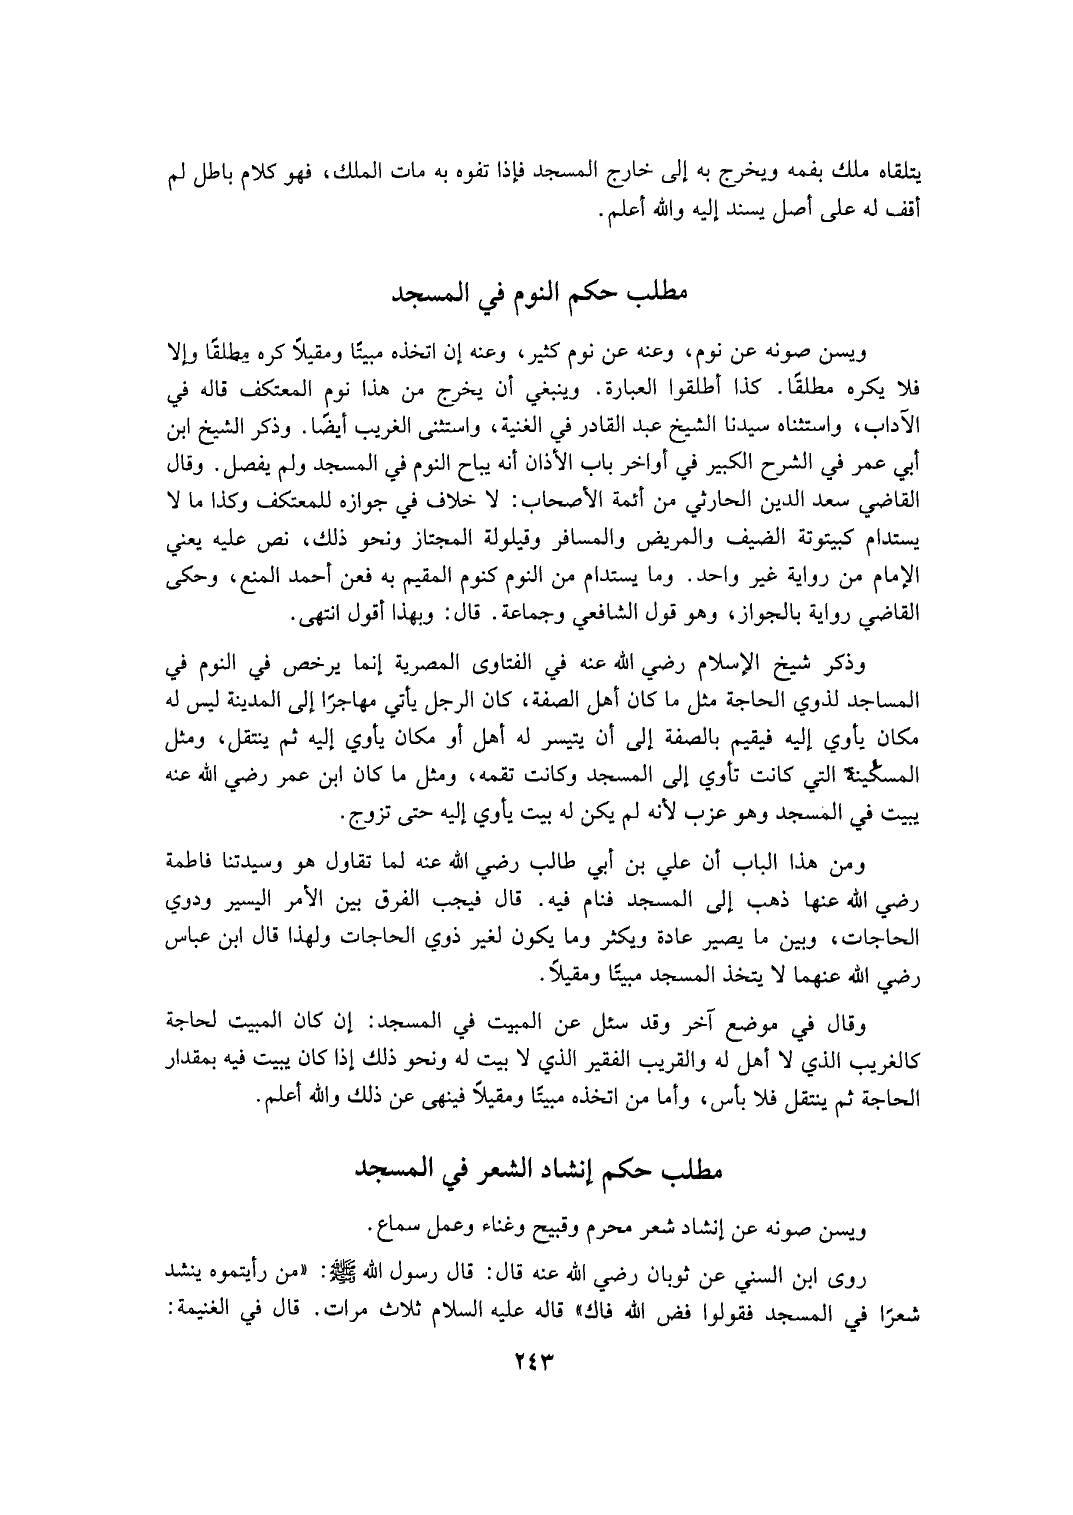 يتلقاه ملك بفمه ويخرج به إلى خارج المسجد فإذا تفوه به مات الملك، فهو كلام باطل لم
أقف له على أصل يسند إليه والله أعلم.
مطلب حكم النوم في المسجد
ويسن صونه عن نوم، وعنه عن نوم كثير، وعنه إن اتخذه مبيتًا ومقيلاً كره مطلقًا وإلا
فلا يكره مطلقًا. كذا أطلقوا العبارة. وينبغي أن يخرج من هذا نوم المعتكف قاله في
الآداب، واستثناه سيدنا الشيخ عبد القادر في الغنية، واستثنى الغريب أيضًا. وذكر الشيخ ابن
أبي عمر في الشرح الكبير في أواخر باب الأذان أنه يباح النوم في المسجد ولم يفصل. وقال
القاضي سعد الدين الحارثي من أئمة الأصحاب: لا خلاف في جوازه للمعتكف وكذا ما لا
يستدام كبيتوتة الضيف والمريض والمسافر وقيلولة المجتاز ونحو ذلك، نص عليه يعني
الإمام من رواية غير واحد. وما يستدام من النوم كنوم المقيم به فعن أحمد المنع، وحكى
القاضي رواية بالجواز، وهو قول الشافعي وجماعة. قال: وبهذا أقول انتهى.
وذكر شيخ الإسلام رضي الله عنه في الفتاوى المصرية إنما يرخص في النوم في
المساجد لذوي الحاجة مثل ما كان أهل الصفة، كان الرجل يأتي مهاجرًا إلى المدينة ليس له
مكان يأوي إليه فيقيم بالصفة إلى أن يتيسر له أهل أو مكان يأوي إليه ثم ينتقل، ومثل
المسكينة التي كانت تأوي إلى المسجد وكانت تقمه، ومثل ما كان ابن عمر رضي الله عنه
يبيت في المسجد وهو عزب لأنه لم يكن له بيت يأوي إليه حتى تزوج.
ومن هذا الباب أن علي بن أبي طالب رضي الله عنه لما تقاول هو وسيدتنا فاطمة
رضي الله عنها ذهب إلى المسجد فنام فيه. قال فيجب الفرق بين الأمر اليسير ودوي
الحاجات، وبين ما يصير عادة ويكثر وما يكون لغير ذوي الحاجات ولهذا قال ابن عباس
رضي الله عنهما لا يتخذ المسجد مبيتًا ومقيلاً.
وقال في موضع آخر وقد سئل عن المبيت في المسجد: إن كان المبيت لحاجة
كالغريب الذي لا أهل له والقريب الفقير الذي لا بيت له ونحو ذلك إذا كان يبيت فيه بمقدار
الحاجة ثم ينتقل فلا بأس، وأما من اتخذه مبيتًا ومقيلاً فينهى عن ذلك والله أعلم.
مطلب حكم إنشاد الشعر في المسجد
ويسن صونه عن إنشاد شعر محرم وقبيح وغناء وعمل سماع.
روى ابن السني عن ثوبان رضي الله عنه قال: قال رسول الله ﷺ: «من رأيتموه ينشد
شعرًا في المسجد فقولوا فض الله فاك» قاله عليه السلام ثلاث مرات. قال في الغنيمة:
٢٤٣